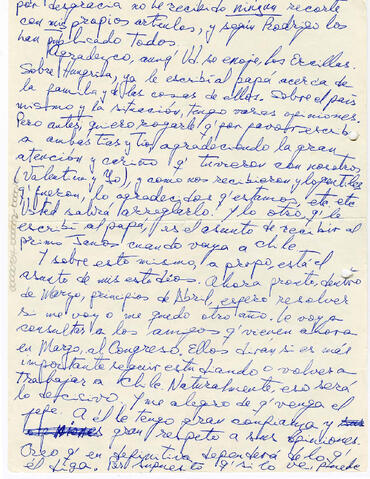 por desgracia no he recibido ningun recorte
con mis propios artículos, y según Rodrigo los
han publicado todos.
Agradezco, aunq' Ud. se enoje, los Ercillas.
Sobre Hungría, ya le escribí al papá acerca de
la familia y de las cosas de ellos. Sobre el país
mismo y la situación, tengo varias opiniones.
Pero antes, quiero rogarle q' por favor escriba
a ambas tías y tío, agradeciendo la gran
atención y cariño q' tuvieron con nosotros
(Valentina y Yo), y como nos recibieron y lo gentiles
q' fueron, lo agradecidos q' estamos, etc. etc.
Usted sabrá arreglarlo. Y lo otro, q' le
escribí al papá, es el asunto de recibir al
primo Janos cuando vaya a Chile.
Y sobre esto mismo, a propo, está el
asunto de mis estudios. Ahora pronto, dentro
de Marzo, principios de Abril, espero resolver
si me voy o me quedo otro año. Le voy a
consultar a los amigos q' vienen ahora
en Marzo, al Congreso. Ellos dirán si es más
importante seguir estudiando o volver a
trabajar a Chile. Naturalmente, eso será
lo decisivo. Y me alegro de q' venga el
pepe. A él le tengo gran confianza y
gran respeto a sus opiniones.
Creo q' en definitiva dependerá de lo q'
él diga. Por supuesto q' si lo ve, puede